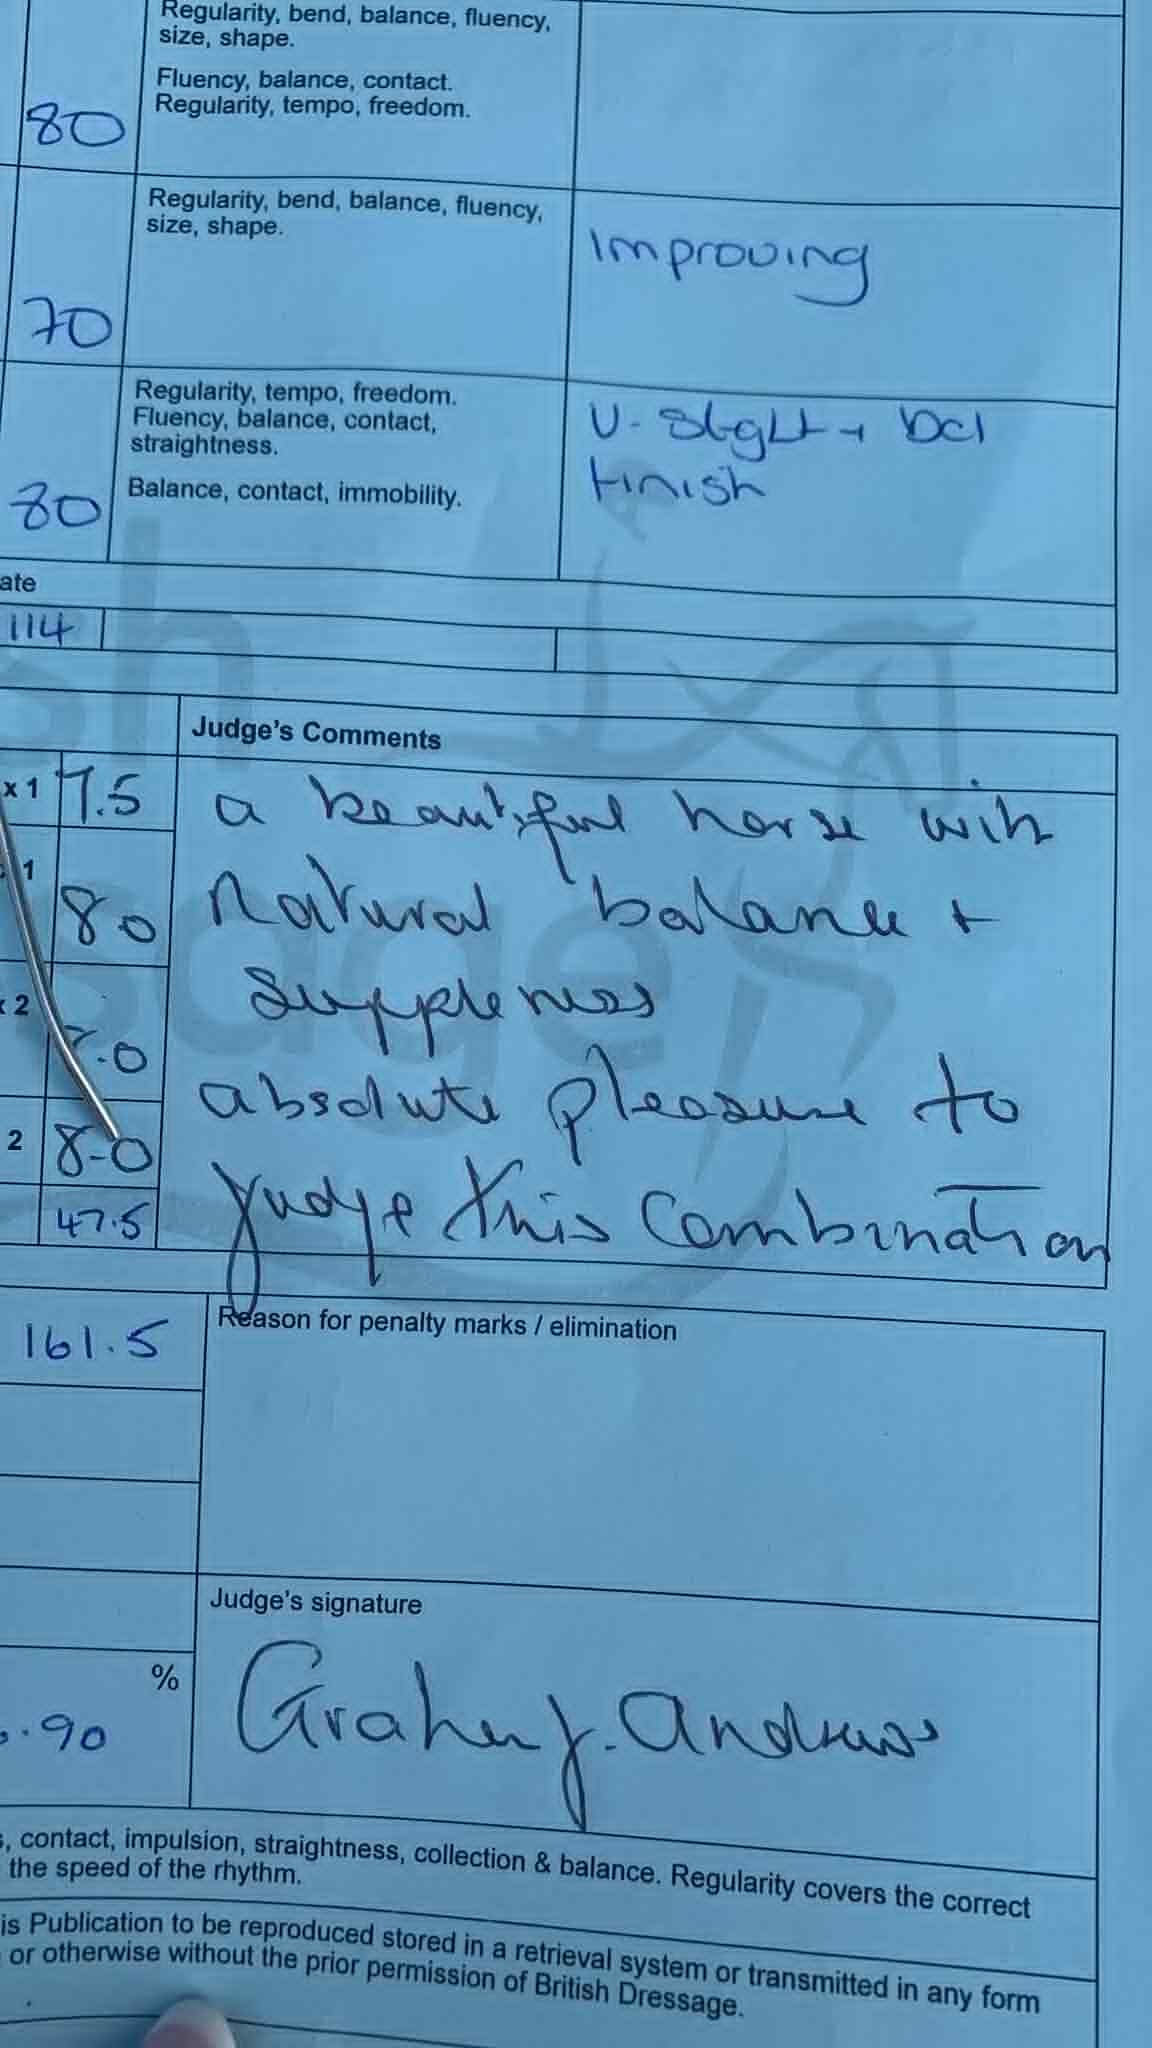 Regularity, bend, balance, fluency,
size, shape.
Fluency, balance, contact.
Regularity, tempo, freedom.
80
Regularity, bend, balance, fluency,
size, shape.
Improving
70
Regularity, tempo, freedom.
Fluency, balance, contact,
straightness.
Balance, contact, immobility.
V. Str + bal
finish
80
ate
114
Judge's Comments
x 1 7.5
a beautiful horse with
1 80
natural balance +
x 2 .0
suppleness
absolute pleasure to
2 8-0
judge this combination
47.5
161.5
Reason for penalty marks / elimination
Judge's signature
%
.90
Andrews
, contact, impulsion, straightness, collection & balance. Regularity covers the correct
the speed of the rhythm.
is Publication to be reproduced stored in a retrieval system or transmitted in any form
or otherwise without the prior permission of British Dressage.